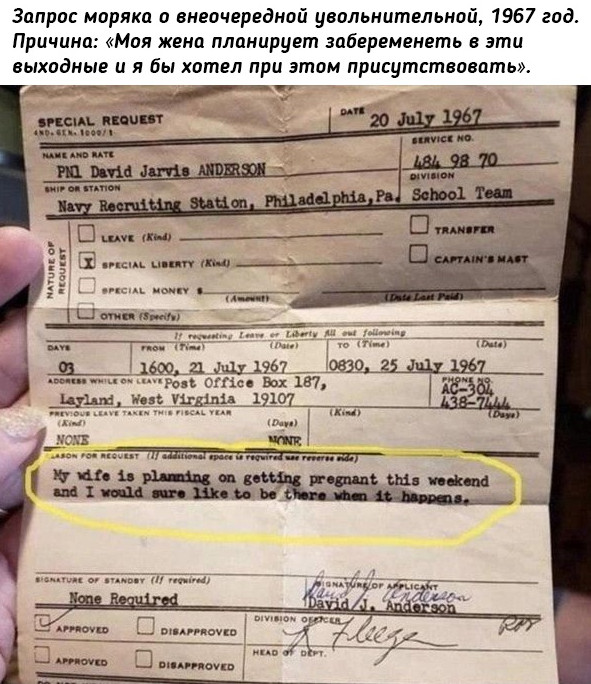 Запрос моряка о внеочередной увольнительной, 1967 год.
Причина: «Моя жена планирует забеременеть в эти
выходные и я бы хотел при этом присутствовать».
SPECIAL REQUEST
DATE 20 July 1967
NAME AND RATE
SERVICE NO.
PN1 David Jarvis ANDERSON
484 98 70
SHIP OR STATION
DIVISION
Navy Recruiting Station, Philadelphia, Pa.
School Team
NATURE OF REQUEST
LEAVE (Kind)
TRANSFER
X SPECIAL LIBERTY (Kind)
CAPTAIN'S MAST
SPECIAL MONEY $
(Amount)
(Date Last Paid)
OTHER (Specify)
If requesting Leave or Liberty fill out following
DAYS
FROM (Time) (Date)
TO (Time) (Date)
03
1600, 21 July 1967
0830, 25 July 1967
ADDRESS WHILE ON LEAVE Post Office Box 187,
PHONE NO.
AC-304
Layland, West Virginia 19107
438-7444
PREVIOUS LEAVE TAKEN THIS FISCAL YEAR
(Kind) (Days) (Kind) (Days)
NONE NONE
REASON FOR REQUEST (If additional space is required use reverse side)
My wife is planning on getting pregnant this weekend
and I would sure like to be there when it happens.
SIGNATURE OF STANDBY (If required)
SIGNATURE OF APPLICANT
None Required
David J. Anderson
David J. Anderson
APPROVED DISAPPROVED
DIVISION OFFICER
HEAD OF DEPT.
APPROVED DISAPPROVED